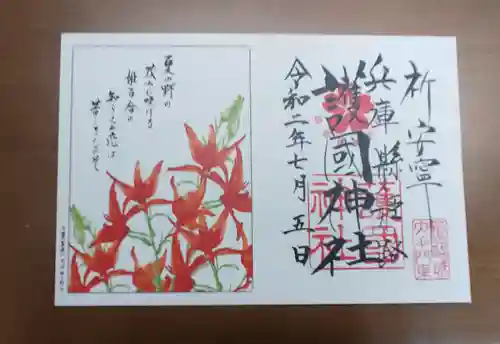 祈安寧
兵庫縣姫路
護國神社
令和二年七月五日
夏の野の
茂みに咲ける
姫百合の
知らえぬ恋は
苦しきものそ